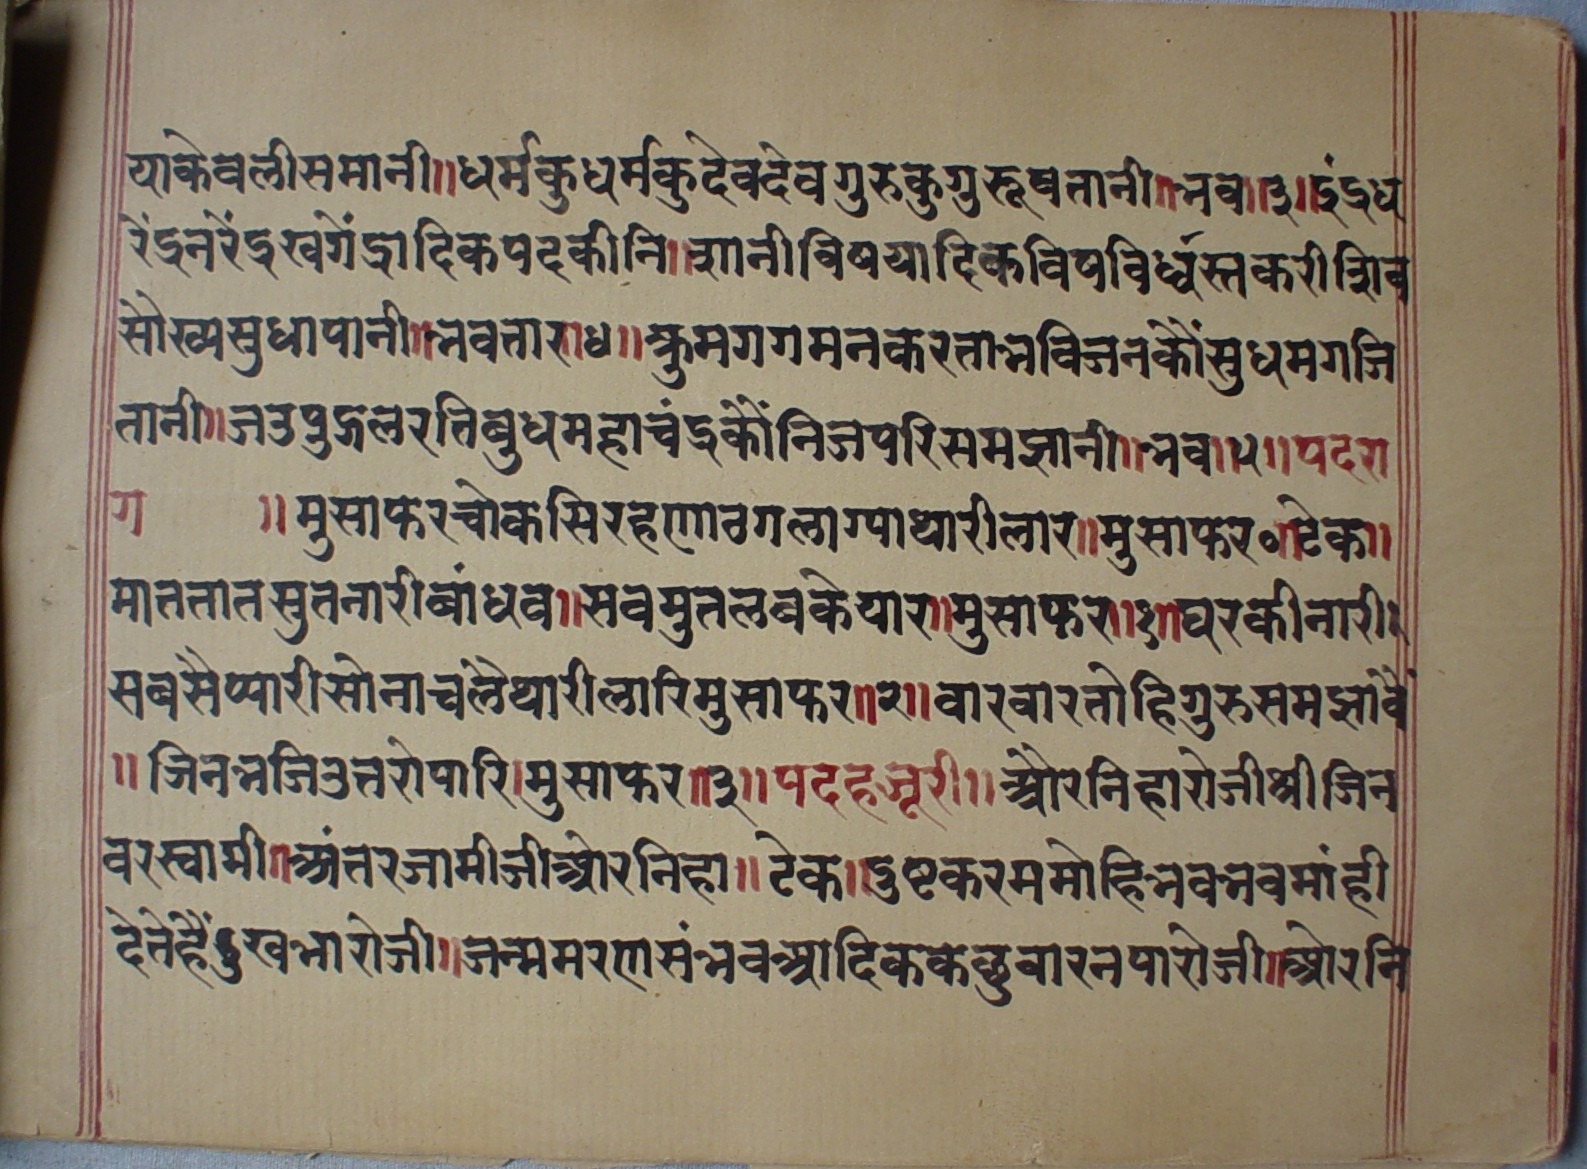 याकेवलीसमानी॥धर्मकुधर्मकुदेवदेवगुरुकुगुरूषतानी॥भव॥३॥इंद्रध
रेंद्रनरेंद्रखगेंद्रादिकपदकीनि॥शानीविषयादिकविषविर्ध्वस्तकरीशिव
सौख्यसुधापानी॥भवतारा४॥कुमगगमनकरताभविजनकौंसुधमगजि
तानी॥जउपुद्गलरतिबुधमहाचंद्रकौंनिजपरिसमझानी॥भव॥५॥पदरा
ग ॥मुसाफरचोकसिरहणाठगलाग्याथारीलार॥मुसाफर०॥टेक॥
माततातसुतनारीबांधव॥सवमुतलबकेयार॥मुसाफर॥१॥घरकीनारी
सबसैप्यारीसोनाचलैथारीलारिमुसाफर॥२॥वारवारतोहिगुरुसमझावै
॥जिनभजिउतरोपारि।मुसाफर॥३॥पदहजूरी॥ओरनिहारोजीश्रीजिन
वरस्वामी॥अंतरजामीजीओरनिहा॥टेक॥दुष्टकरममोहिभवभवमांही
देतेहैंदुखभारोजी॥जन्ममरणसंभवआदिककछुवारनपारोजी॥ओरनि